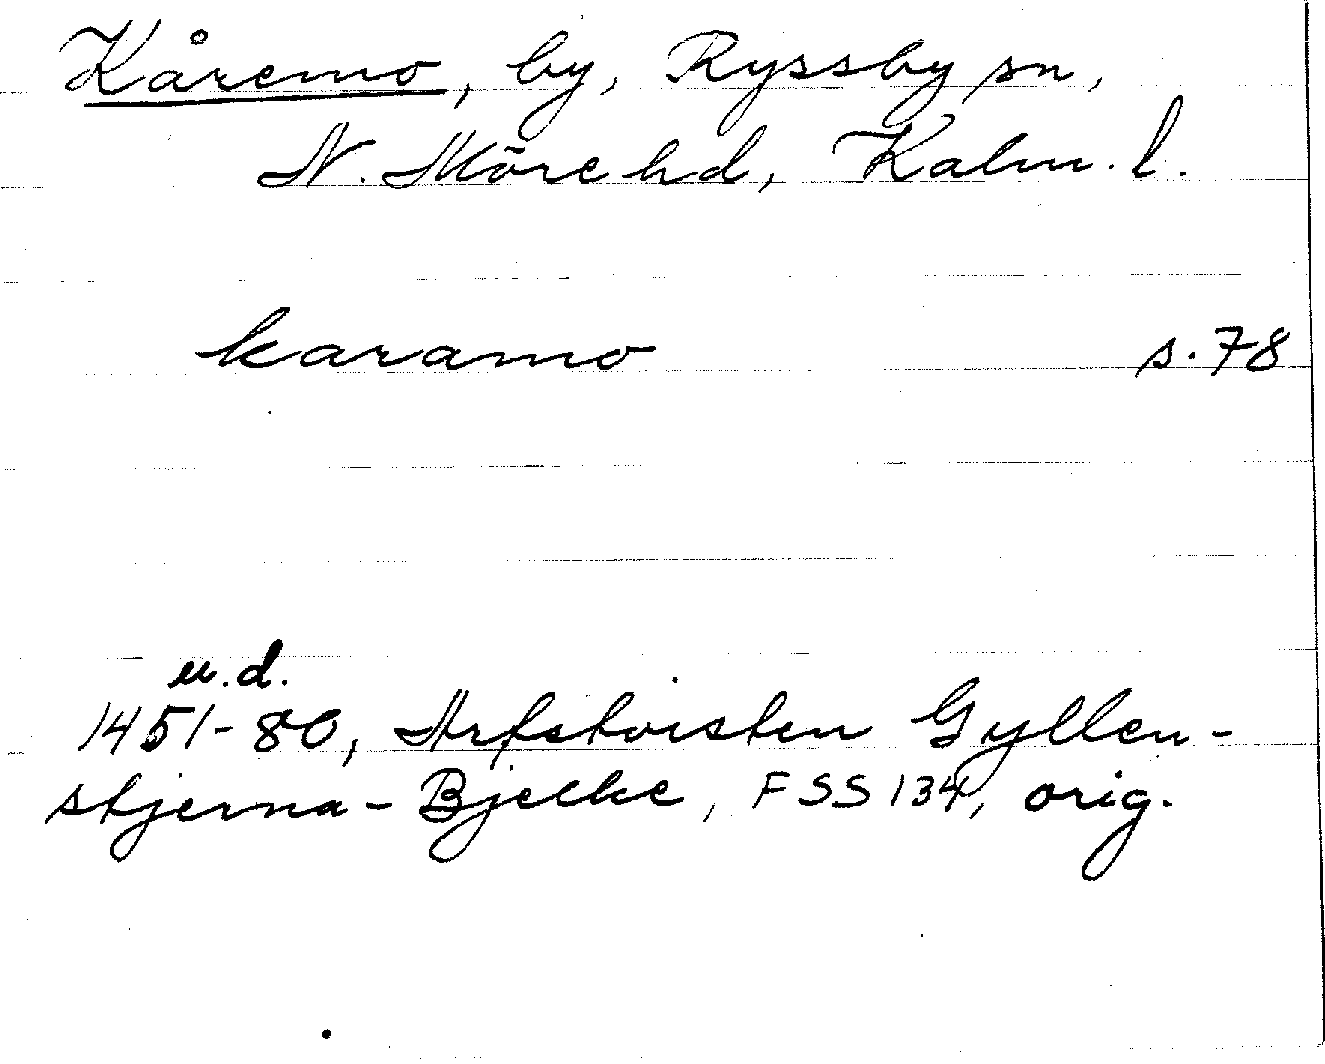 Kåremo, by, Ryssby sn,
N. Möre hd, Kalm. l.
karamo s. 78
u.d.
1451-80, Arfstvisten Gyllen-
stjerna-Bjelke, FSS 134, orig.